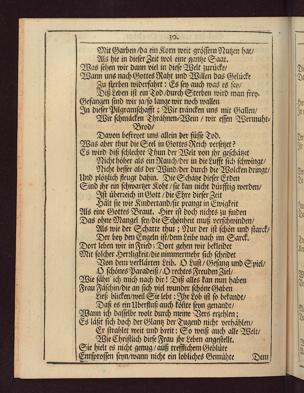 30.
Mit Garben/da ein Korn weit grössern Nutzen hat/
Als hie in dieser Zeit wol eine gantze Saat.
Was sehen wir dann viel in diese Welt zurücke/
Wann uns nach Gottes Raht und Willen das Gelücke
Zu sterben widerfahrt: Es sey auch was es sey/
Diß Leben ist ein Tod/durch Sterben wird man frey.
Gefangen sind wir ja/so lange wir noch wallen
In dieser Pilgramschafft; Wir träncken uns mit Gallen/
Wir schmäcken Thränen-Wein/ wir essen Wermuht-
Brod/
Davon befreyet uns allein der süsse Tod.
Was aber thut die Seel in Gottes Reich versetzet?
Es wird diß schlechte Thun der Welt von ihr geschätzet
Nicht höher als ein Rauch/der in die Lufft sich schwingt/
Nicht besser als der Wind/der durch die Wolcken dringt/
Und plötzlich steugt dahin. Die Schätze dieser Erden
Sind ihr ein schwartzer Koht/sie kan nicht dürfftig werden/
Ist überreich in Gott/die Ehr dieser Zeit
Hält sie wie Kindertand/sie prangt in Ewigkeit
Als eine Gottes Braut. Hier ist doch nichts zu finden
Das ohne Mangel sey/die Schönheit muß verschwinden/
Als wie der Schatte thut; Nur der ist schön und starck/
Der bey den Engeln ist/dem Leibe nach im Sarck.
Dort leben wir in Fried; Dort gehen wir bekleidet
Mit solcher Herrligkeit/die nimmermehr sich scheidet
Von dem verklärten Leib. O Lust/ Gesang und Spiel/
O schönes Paradeiß/ O rechtes Freuden Ziel/
Wie sähn ich mich nach dir! Diß alles kan nun haben
Frau Fäschin/die an sich viel wunder schöne Gaben
Ließ blicken/weil Sie lebt: Ihr Lob ist so bekandt/
Daß es ein Uberfluß auch könte seyn genandt/
Wann ich dasselbe wolt durch meine Vers erzehlen;
Es läßt sich doch der Glantz der Tugend nicht verhählen/
Er strahlet weit und breit: So weiß auch alle Welt/
Wie Christlich diese Frau ihr Leben angestellt.
Sie hielt es nicht genug/auß trefflichem Geblüte
Entsprossen seyn/wann nicht ein löbliches Gemühte
Dem